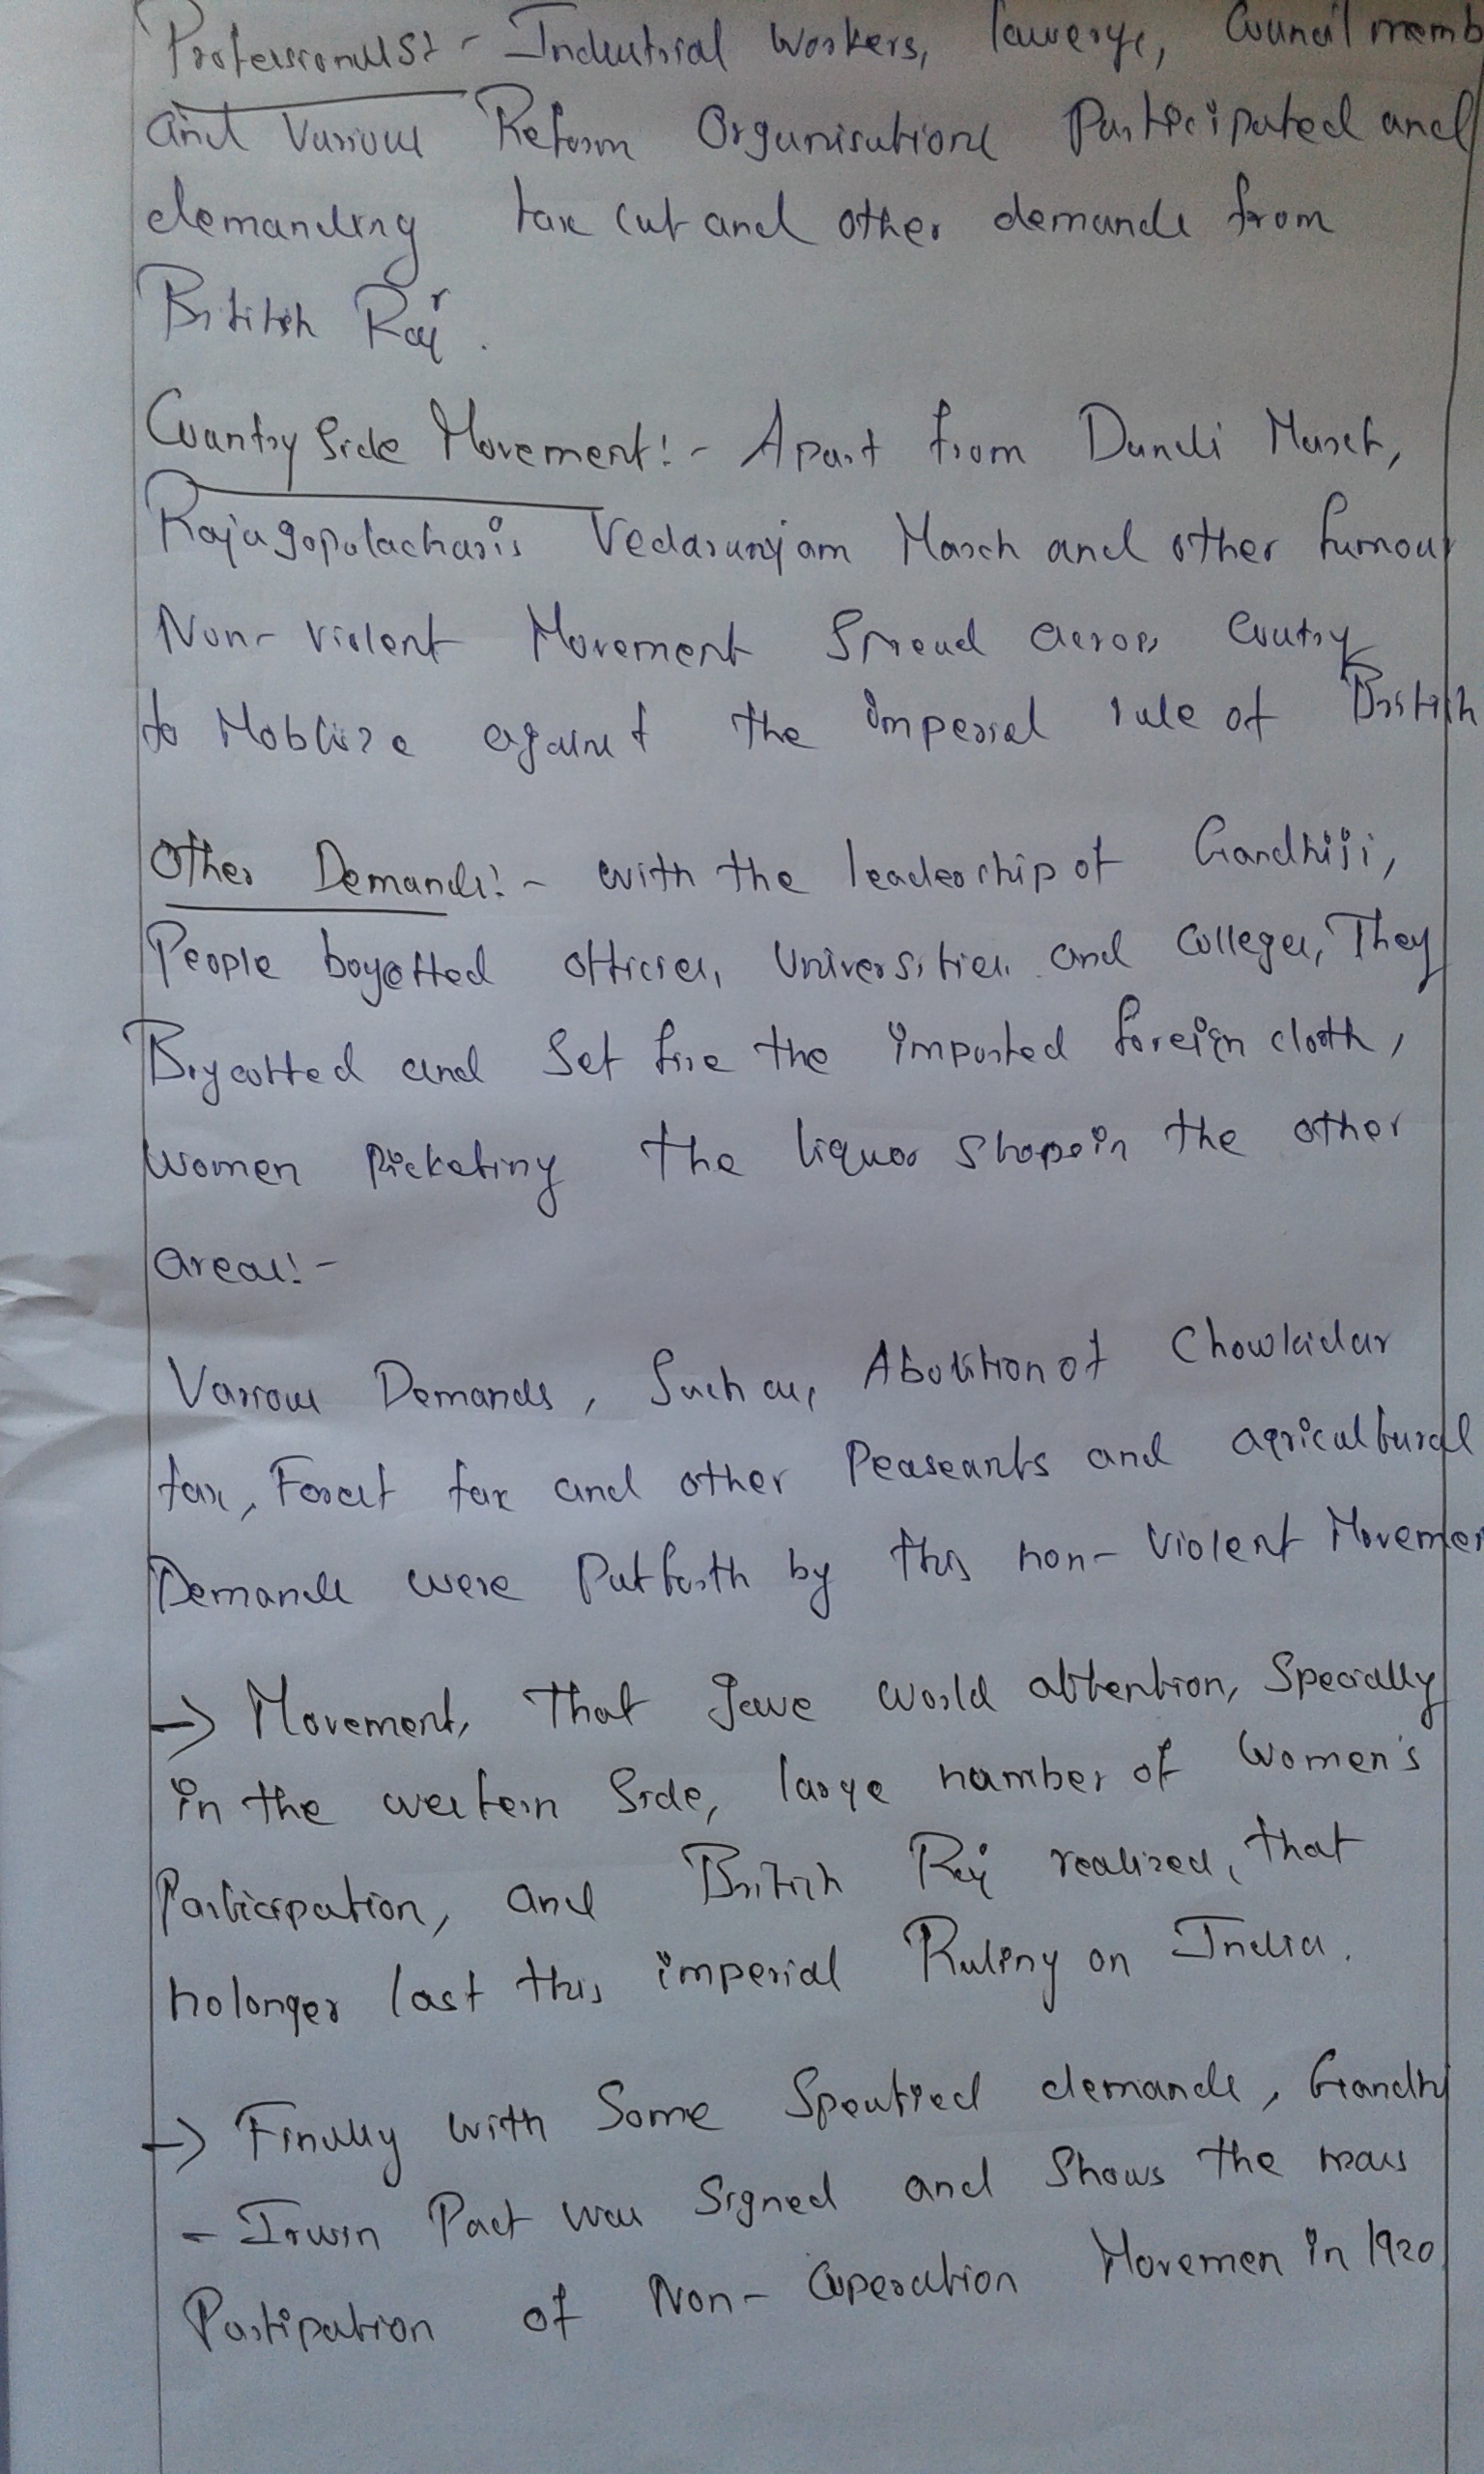 Professionals:- Industrial Workers, lawerys, Council memb
and Various Reform Organisations Participated and
demanding tax cut and other demands from
British Raj.
Country Side Movement:- Apart from Dandi March,
Rajagopalacharis Vedaranjam March and other famous
Non-violent Movement Spread across Coutry
to Moblize against the imperial rule of British
Other Demands:- with the leadership of Gandhiji,
People boycotted officies, Universities and Colleges, They
Boycotted and Set fire the imported foreign cloth,
Women Picketing the liquor Shops in the other
areas:-
Various Demands, Such as, Abolition of Chowkidar
tax, Forest tax and other Peaseants and agricultural
Demands were Put forth by this non-Violent Movemen
→ Movement, that gave world attention, Specially
in the western Side, large number of Women's
Participation, and British Raj realized, that
no longer last this imperial Ruling on India.
→ Finally with Some Specified demands, Gandhi
- Irwin Pact was Signed and Shows the mass
Partipation of Non-Coperation Movemen in 1920